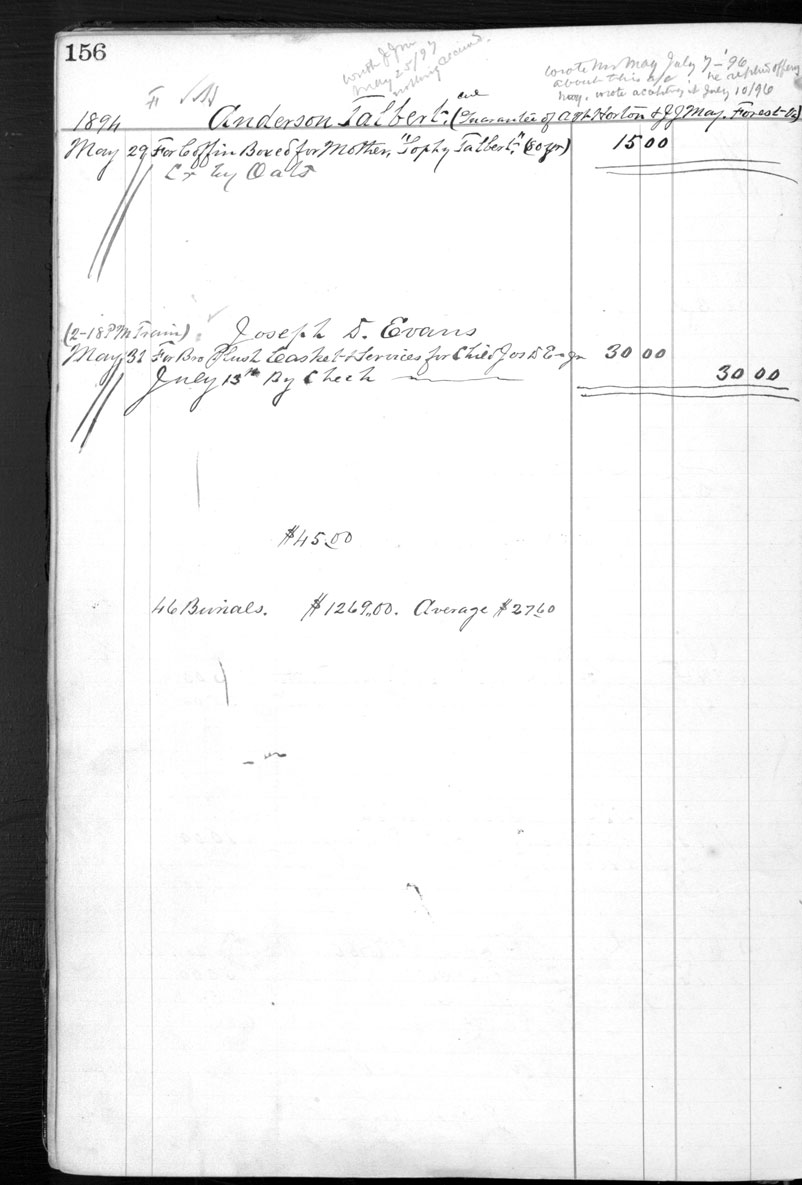 156
wrote J J m
May 25/97
nothing
wrote Mr May July 7-'96
about this a/c he replied offering
wrote July 10/96
1894 Anderson Talbert. (Guarantee of Horton & J J May. Forest-
May 29 For Coffin Boxed for Mother, "Sophy Talbert." (60 yr) 15 00
Cr by Oats
(2-18 PM Train) Joseph D. Evans
May 31 For Bro Plush Casket & Services for Child Jos D E-jr 30 00
July 13th By Check 30 00
$45.00
46 Burials. $1269.00. Average $27.60